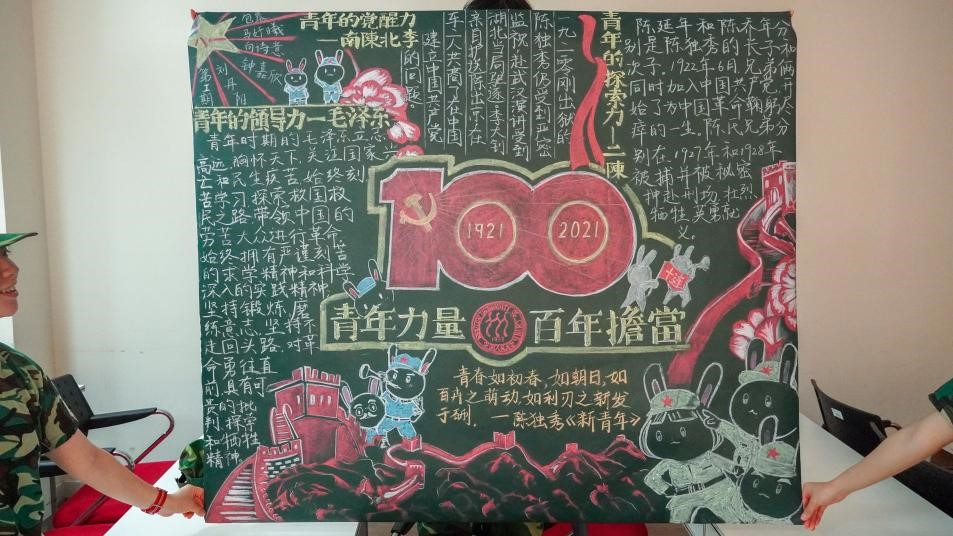 青年的觉醒力
—南陳北李
一九二零刚出狱的
陈独秀仍受到严密
监视,赴武汉演讲受到
湖北当局驱逐,李大钊
亲自护送陈出
车人共商了在中国
建立中国共产党
的问题。
青年的探索力—二陳
陈延年和陈乔年分
别是陈独秀的长子和
次子.1922年6月兄弟俩
一同加入中国共产党,并
始了为中国革命鞠躬尽
瘁的一生.陈氏兄弟分
别在1927年和1928年
被捕并被秘密
押赴刑场,壮烈
牺牲,英勇就
义.
青年的領导力—毛泽东
青年时期的毛泽东立志
高远,胸怀天下,关注国家兴
亡和民生疾苦,始终刻
苦学习探索救国救
民之路,带领中国的
劳苦大众进行革命.
始终拥有严谨刻苦
的求学精神和科学
深入的实践精神,
坚持锻炼,磨
练意志,坚持不
走回头路.对革
命勇往直
前,具有可
贵的批
判探索
和牺牲
精神.
100
1921
2021
青年力量
百年擔當
青春如初春,如朝日,如
百卉之萌动,如利刃之新发
于硎.
—陈独秀《新青年》